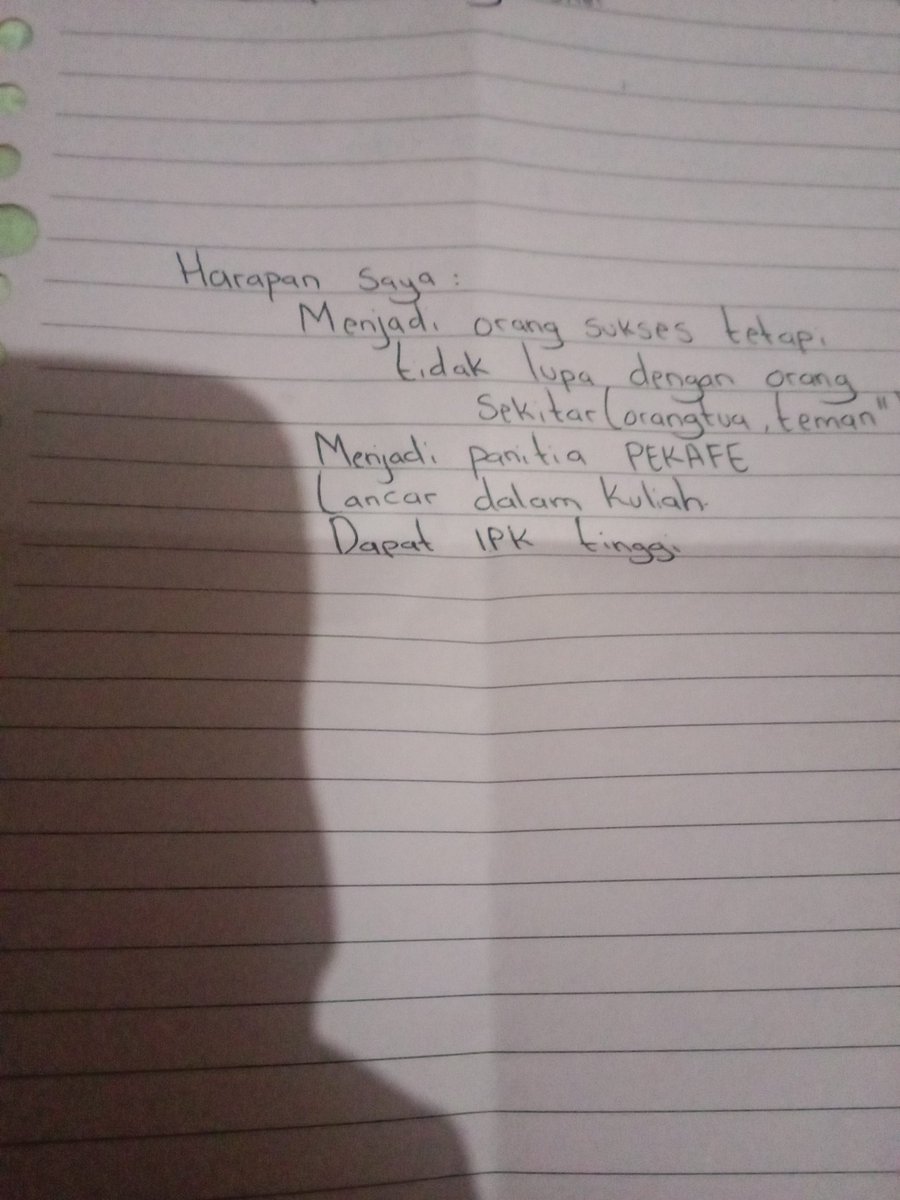 Harapan saya :
Menjadi orang sukses tetapi
tidak lupa dengan orang
Sekitar (orangtua, teman")
Menjadi panitia PEKAFE
Lancar dalam kuliah.
Dapat IPK tinggi